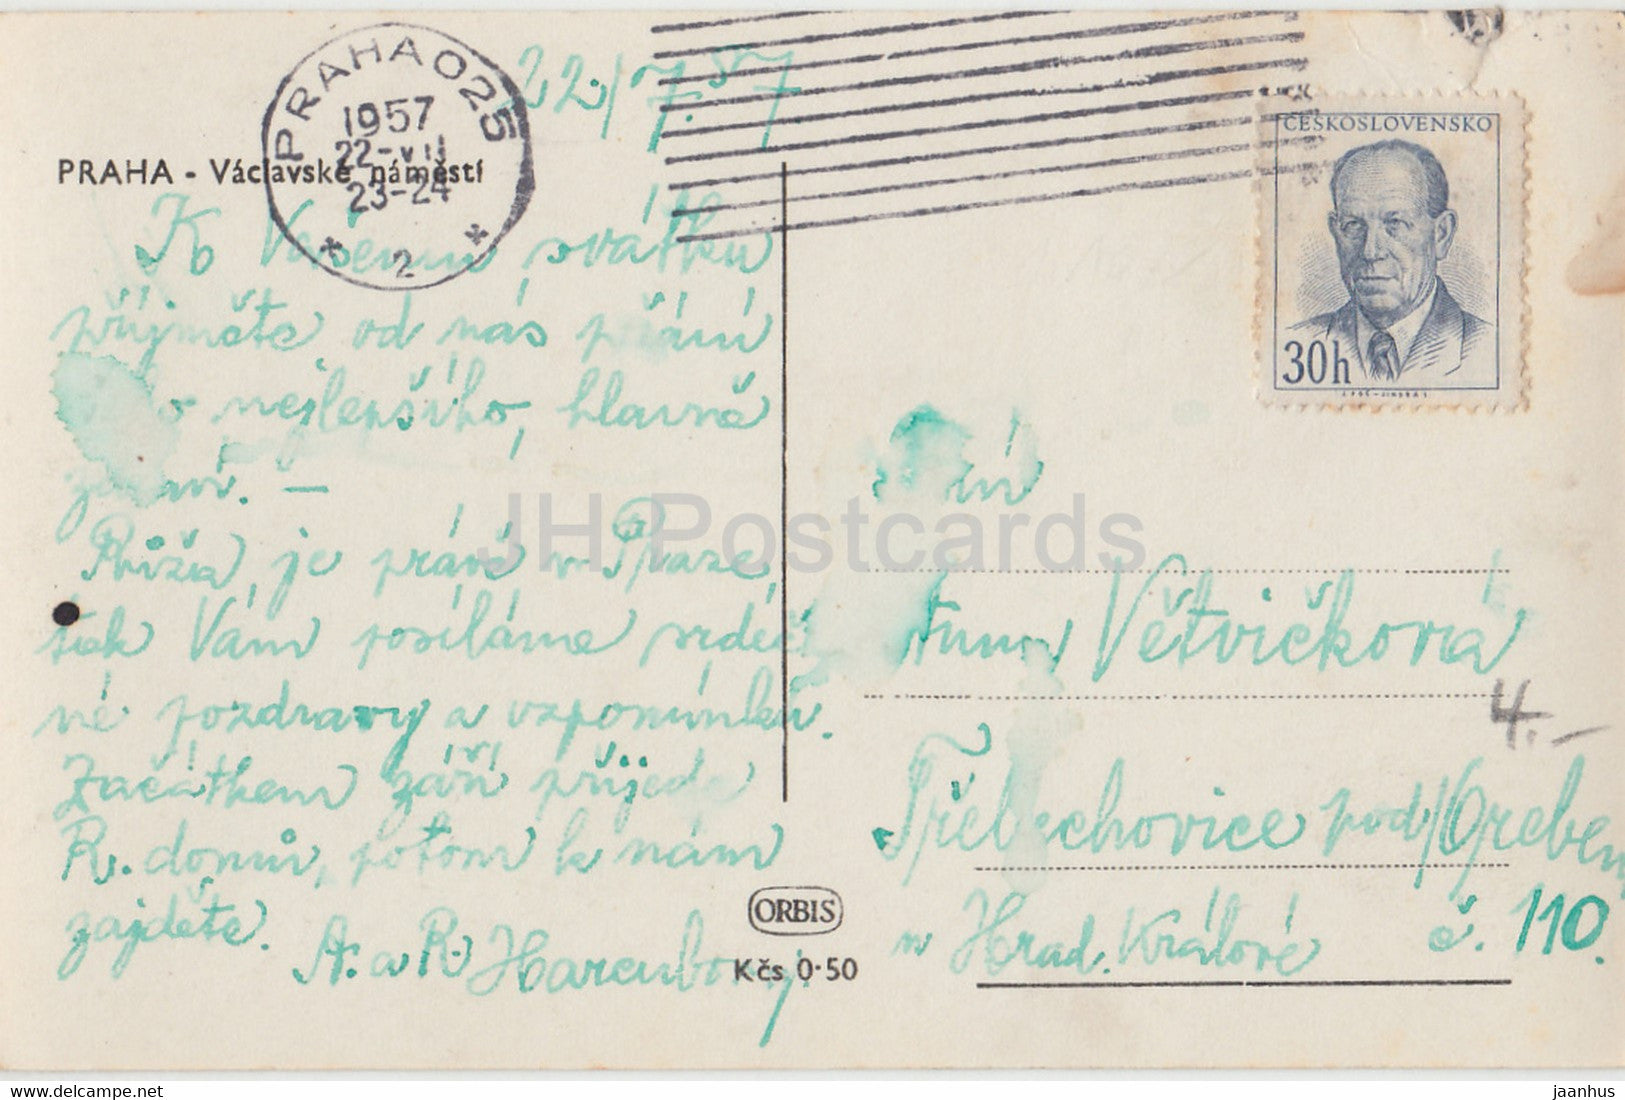 PRAHA 025
1957
22-VII
23-24
2
22./7.57
PRAHA - Václavské náměstí
K Vašemu svátku
přijměte od nás přání
nejlepšího, hlavně
zdraví. —
Růža je právě v Praze,
tak Vám posíláme srdeč
né pozdravy a vzpomínku.
Začátkem září přijede
R. domů, potom k nám
zajděte.
A. a R.
ČESKOSLOVENSKO
30h
JH Postcards
Anna Větvičková
4.-
Třebechovice pod/Orebem
u Hrad. Králové č. 110.
ORBIS
Kčs 0·50
www.delcampe.net
jaanhus